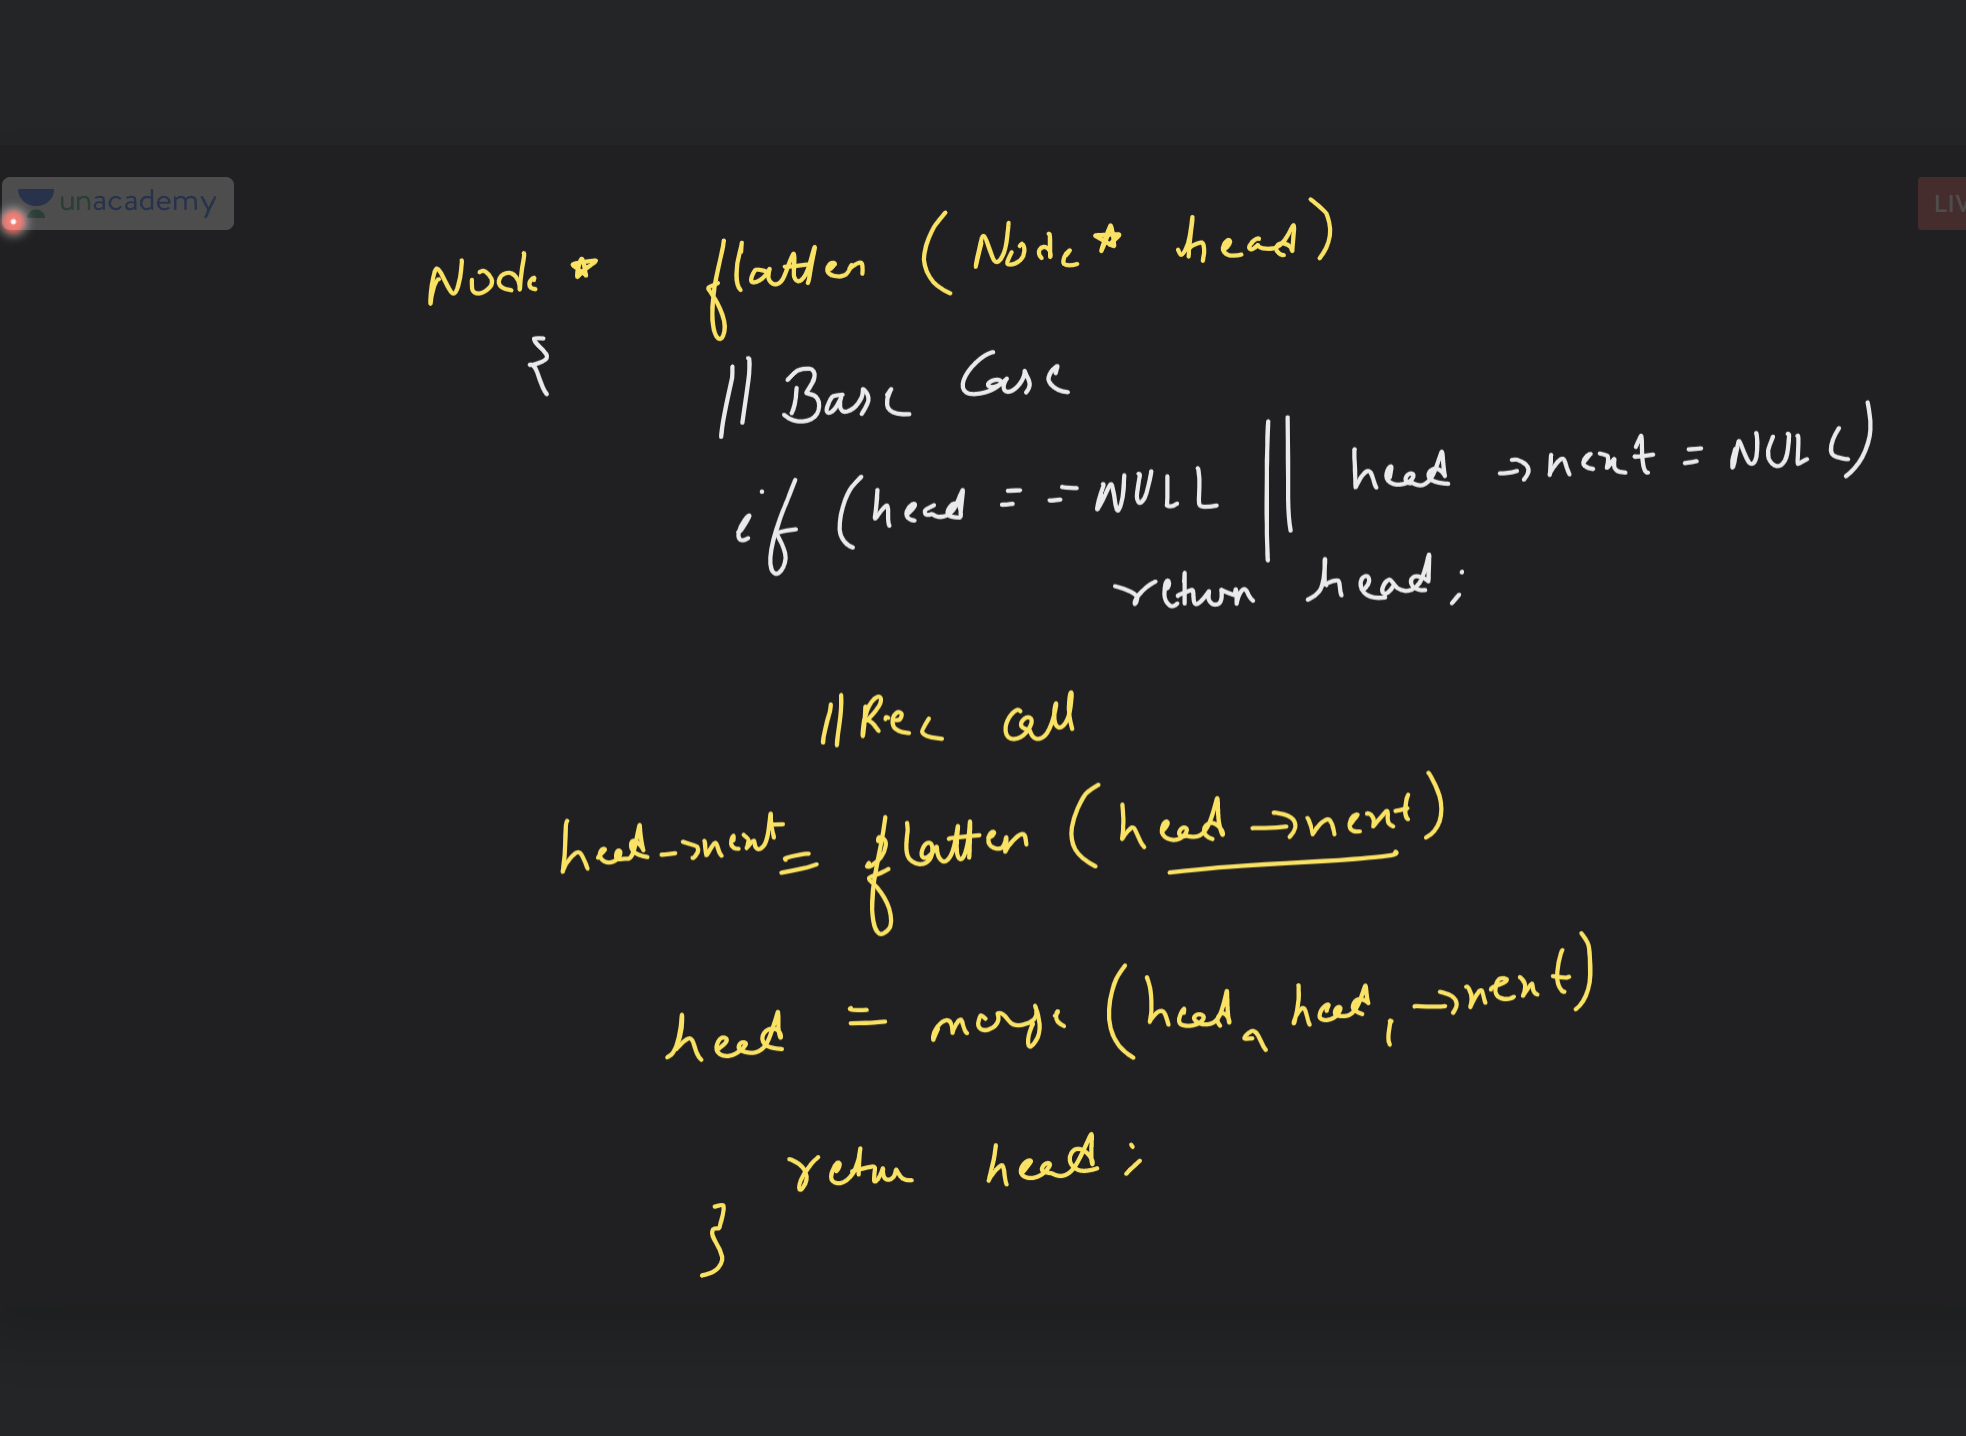 unacademy
LIV
Node * flatten (Node* head)
{
// Base Case
if (head == NULL || head →next = NULL)
return head;
// Rec call
head→next = flatten (head →next)
head = merge (head, head, →next)
return head;
}